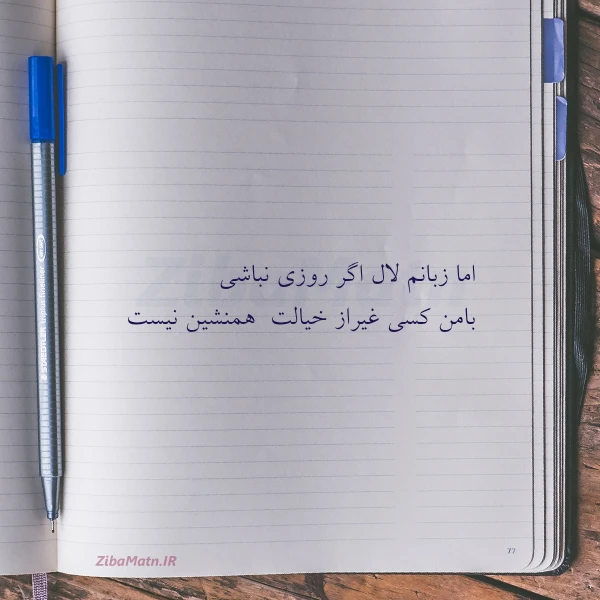 اما زبانم لال اگر روزی نباشی
بامن کسی غیراز خیالت همنشین نیست
ZibaMatn.IR
ZibaMatn.IR
77